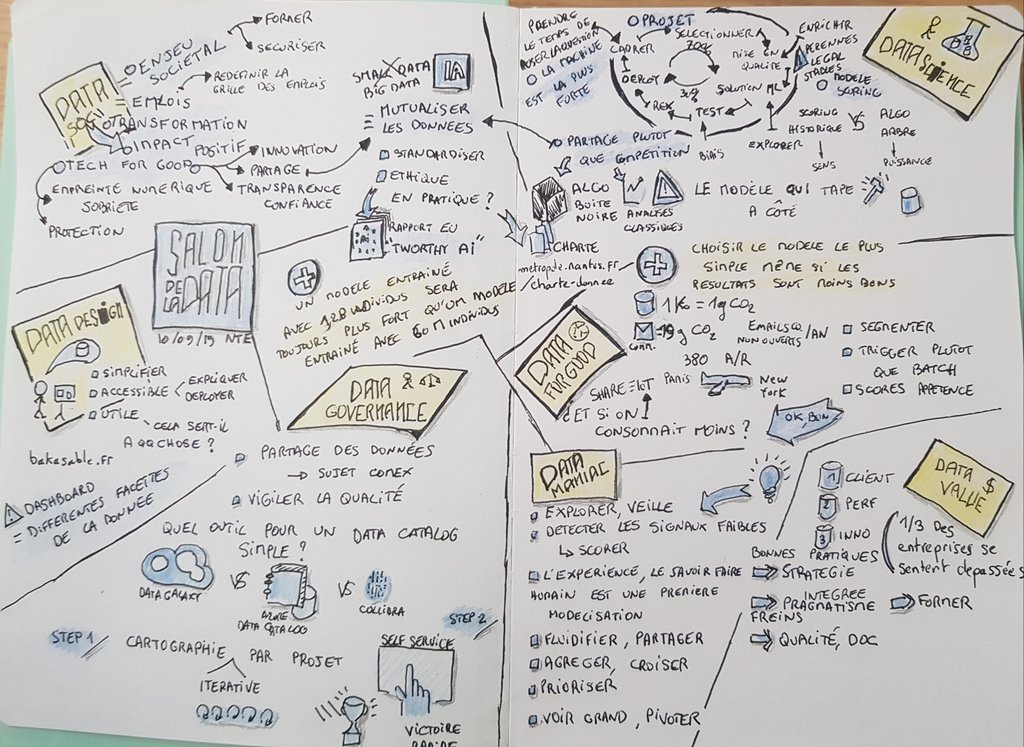 DATA
SOCIO
ENJEU
SOCIÉTAL
FORMER
SÉCURISER
EMPLOIS
REDÉFINIR LA
GRILLE DES EMPLOIS
TRANSFORMATION
IMPACT POSITIF
TECH FOR GOOD
INNOVATION
PARTAGE
TRANSPARENCE
CONFIANCE
EMPREINTE NUMÉRIQUE
SOBRIÉTÉ
PROTECTION
SMALL DATA
BIG DATA
IA
MUTUALISER
LES DONNÉES
STANDARDISER
ETHIQUE
EN PRATIQUE ?
RAPPORT EU
"TWORTHY AI"
SALON
DE LA DATA
10/09/19 NTE
UN MODÈLE ENTRAINÉ
AVEC 1,2B INDIVIDUS SERA
TOUJOURS PLUS FORT QU'UN MODÈLE
ENTRAINÉ AVEC 60 M INDIVIDUS
DATA DESIGN
SIMPLIFIER
ACCESSIBLE
EXPLIQUER
DEPLOYER
UTILE
CELA SERT-IL
A QQCHOSE ?
bakasable.fr
DASHBOARD
= DIFFERENTES FACETTES
DE LA DONNÉE
DATA
GOVERNANCE
PARTAGE DES DONNÉES
→ SUJET COMEX
VIGILER LA QUALITÉ
QUEL OUTIL POUR UN DATA CATALOG
SIMPLE ?
DATA GALAXY
VS
AZURE
DATA CATALOG
VS
COLLIBRA
STEP 1
CARTOGRAPHIE PAR PROJET
ITERATIVE
STEP 2
SELF SERVICE
VICTOIRE
RAPIDE
PRENDRE
LE TEMPS DE
POSER LA QUESTION
LA MACHINE
EST LA PLUS
FORTE
PROJET
CADRER
SELECTIONNER
70%
MISE EN
QUALITÉ
SOLUTION ML
TEST
REX
DEPLOY
30%
BIAIS
EXPLORER
ENRICHIR
PERENNES
LEGAL
STABLES
MODÈLE
SCORING
DATA SCIENCE
SCORING
HISTORIQUE
VS
ALGO
ARBRE
SENS
PUISSANCE
PARTAGE PLUTOT
QUE COMPÉTITION
ALGO
BOITE
NOIRE
ANALYSES
CLASSIQUES
LE MODÈLE QUI TAPE
À CÔTÉ
CHARTE
metropole.nantes.fr
/charte-donnee
CHOISIR LE MODÈLE LE PLUS
SIMPLE MÊME SI LES
RESULTATS SONT MOINS BONS
DATA
FOR GOOD
1 Ko = 1g CO2
= 19 g CO2
EMAILS
NON OUVERTS /AN
380 A/R
PARIS
NEW
YORK
SHARE IoT
ET SI ON
CONSOMMAIT MOINS ?
OK, BON
SEGMENTER
TRIGGER PLUTOT
QUE BATCH
SCORES APPETENCE
DATA
MANIAC
EXPLORER, VEILLE
DETECTER LES SIGNAUX FAIBLES
↳ SCORER
L'EXPERIENCE, LE SAVOIR FAIRE
HUMAIN EST UNE PREMIERE
MODELISATION
FLUIDIFIER, PARTAGER
AGREGER, CROISER
PRIORISER
VOIR GRAND, PIVOTER
DATA
VALUE $
1 CLIENT
2 PERF
3 INNO
1/3 des
entreprises se
sentent dépassées
BONNES PRATIQUES
STRATEGIE
INTEGREE
PRAGMATISME
FORMER
FREINS
QUALITÉ, DOC